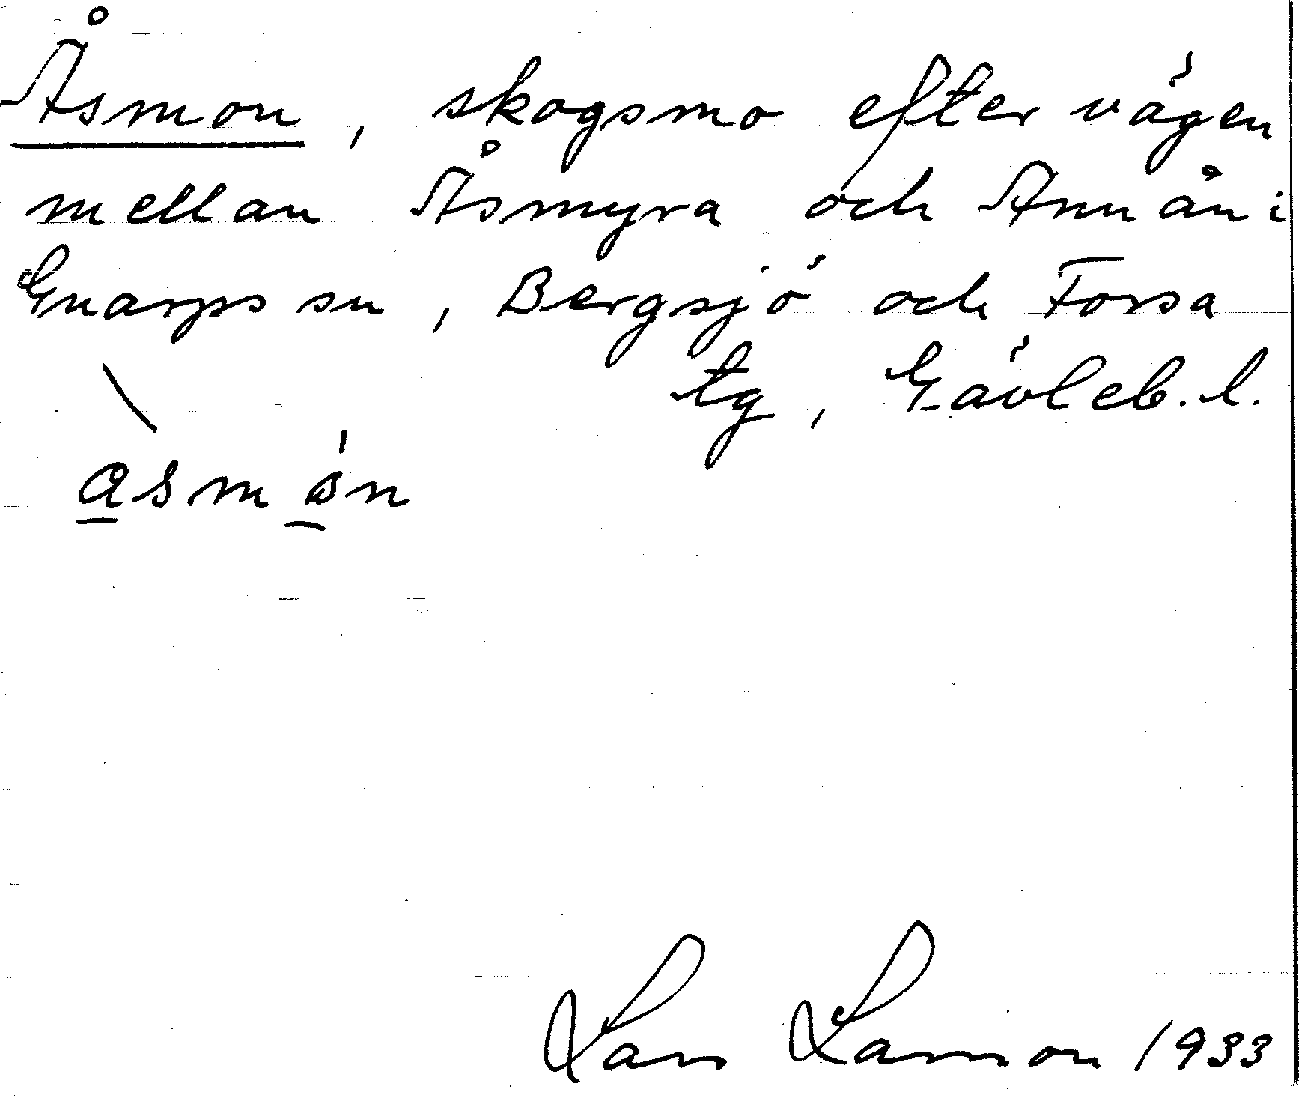 Åsmon, skogsmo efter vägen
mellan Åsmyra och Annån i
Gnarps sn, Bergsjö och Forsa
tg, Gävleb. l.
Lars Larson 1933